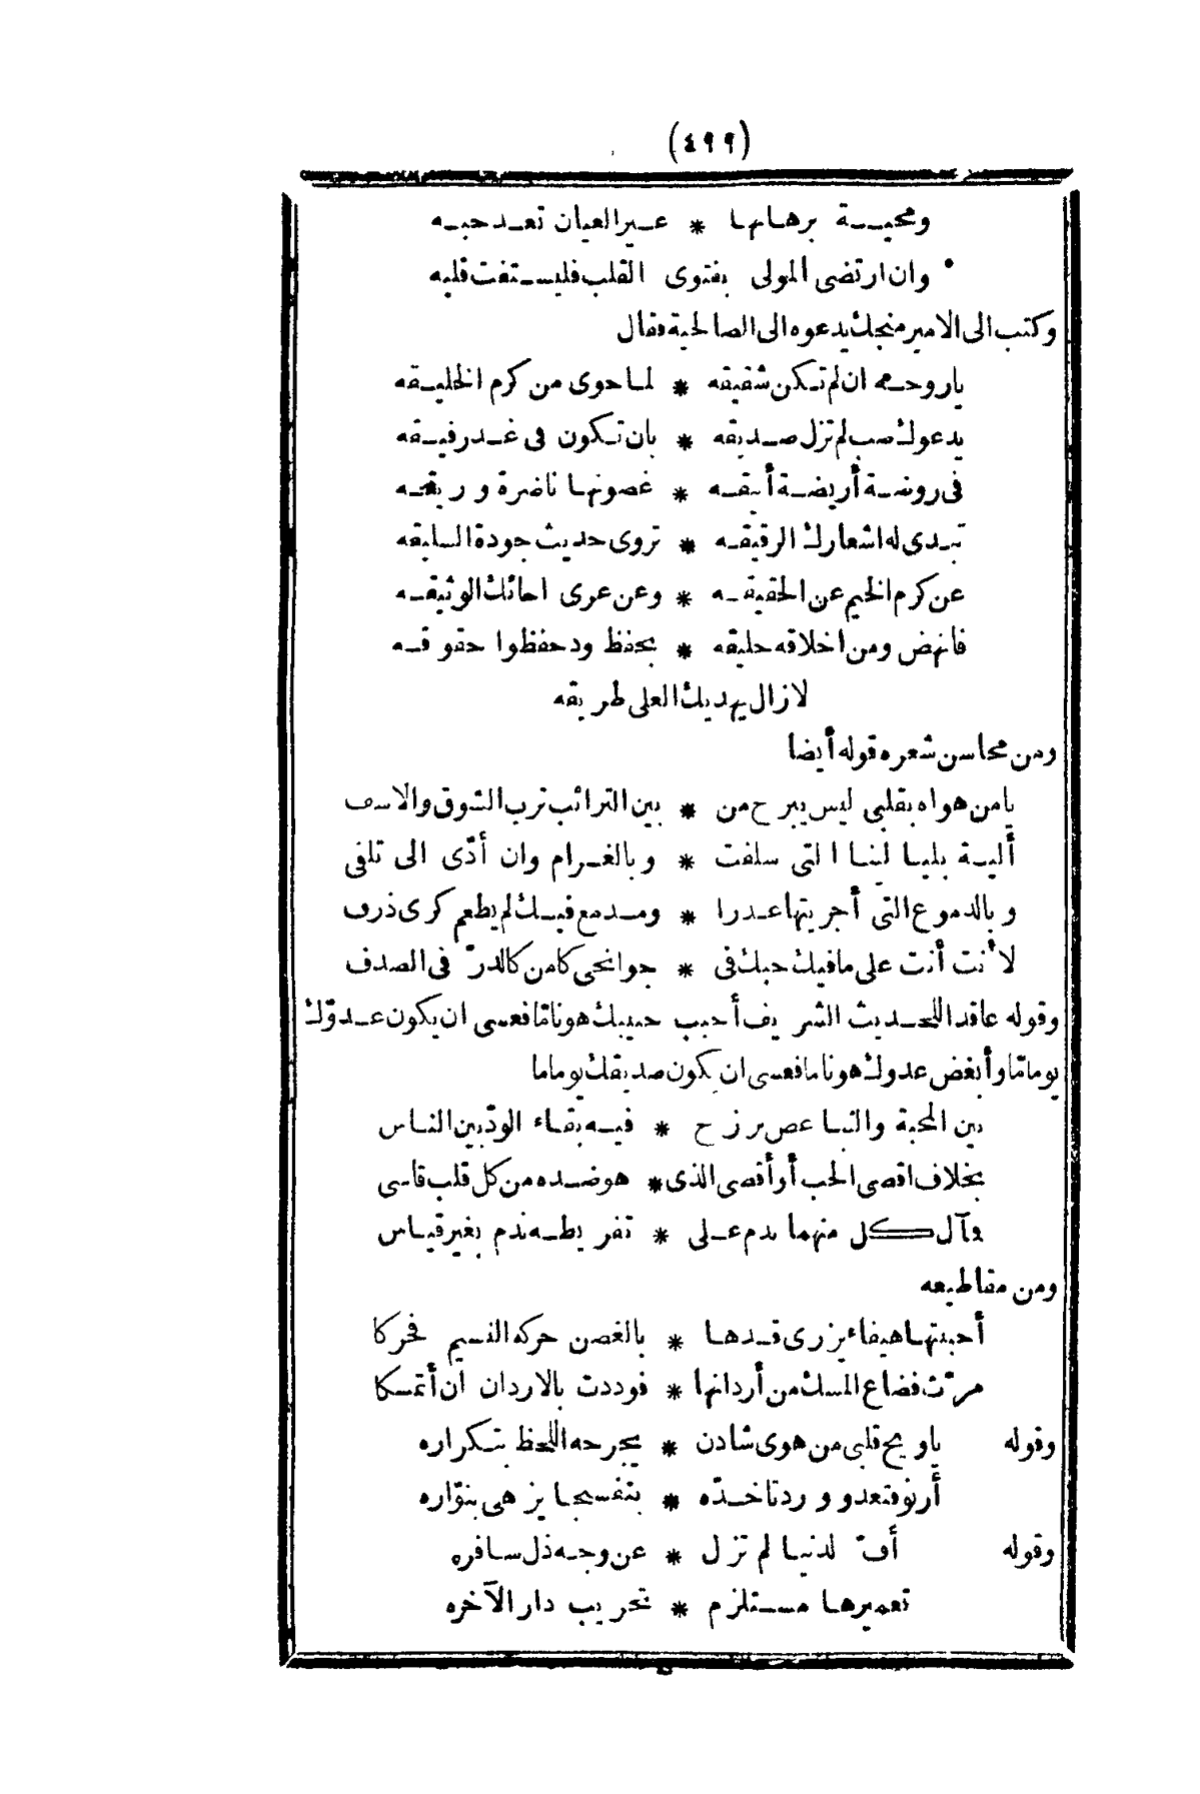 (٤٩٩)
ومحبة برهانها * عبر العيان تعد حبه
وان ارتضى المولى بفتوى القلب فليستفت قلبه
وكتب الى الامير منجك يدعوه الى الصالحية فقال
ياروحه ان لم تكن شقيقه * لما حوى من كرم الخليقه
يدعوك صب لم تزل صديقه * بان تكون فى غد رفيقه
فى روضة أريضة أنيقه * غصونها ناضرة وريقه
تبدى له اشعارك الرقيقه * تروى حديث جودة السليقه
عن كرم الخيم عن الحقيقه * وعن عرى اخائك الوثيقه
فانهض ومن اخلاقه خليقه * بحفظ ود حفظوا حقوقه
لا زال يهديك العلى طريقه
ومن محاسن شعره قوله أيضا
يا من هواه بقلبى ليس يبرح من * بين الترائب ترب الشوق والاسف
ألية بليالينا التى سلفت * وبالغرام وان أدّى الى تلفى
وبالدموع التى أجريتها غدرا * ومدمع فيك لم يطعم كرى ذرف
لأنت أنت على ما فيك حبك فى * جوانحى كامن كالدرّ فى الصدف
وقوله عاقدا للحديث الشريف أحبب حبيبك هونا مّا فعسى ان يكون عدوّك
يوما مّا وأبغض عدوك هونا ما فعسى ان يكون صديقك يوما ما
بين المحبة والتباغض برزح * فيه بقاء الودّ بين الناس
بخلاف اقصى الحب أو أقصى الذى * هو ضده من كل قلب قاسى
ومآل كل منهما ندم على * تفريطه ندم بغير قياس
ومن مقاطيعه
أحببتها هيفاء يزرى قدها * بالغصن حركه النسيم فحركا
مرّت فضاع المسك من أردانها * فوددت بالاردان ان أتمسكا
وقوله ياويح قلبى من هوى شادن * يجرحه اللحظ بتكراره
أرنو فتغدو وردتا خدّه * بنفسجا يزهى بنوّاره
وقوله أفّ لدنيا لم تزل * عن وجه ذل سافره
تعميرها مستلزم * تخريب دار الآخره